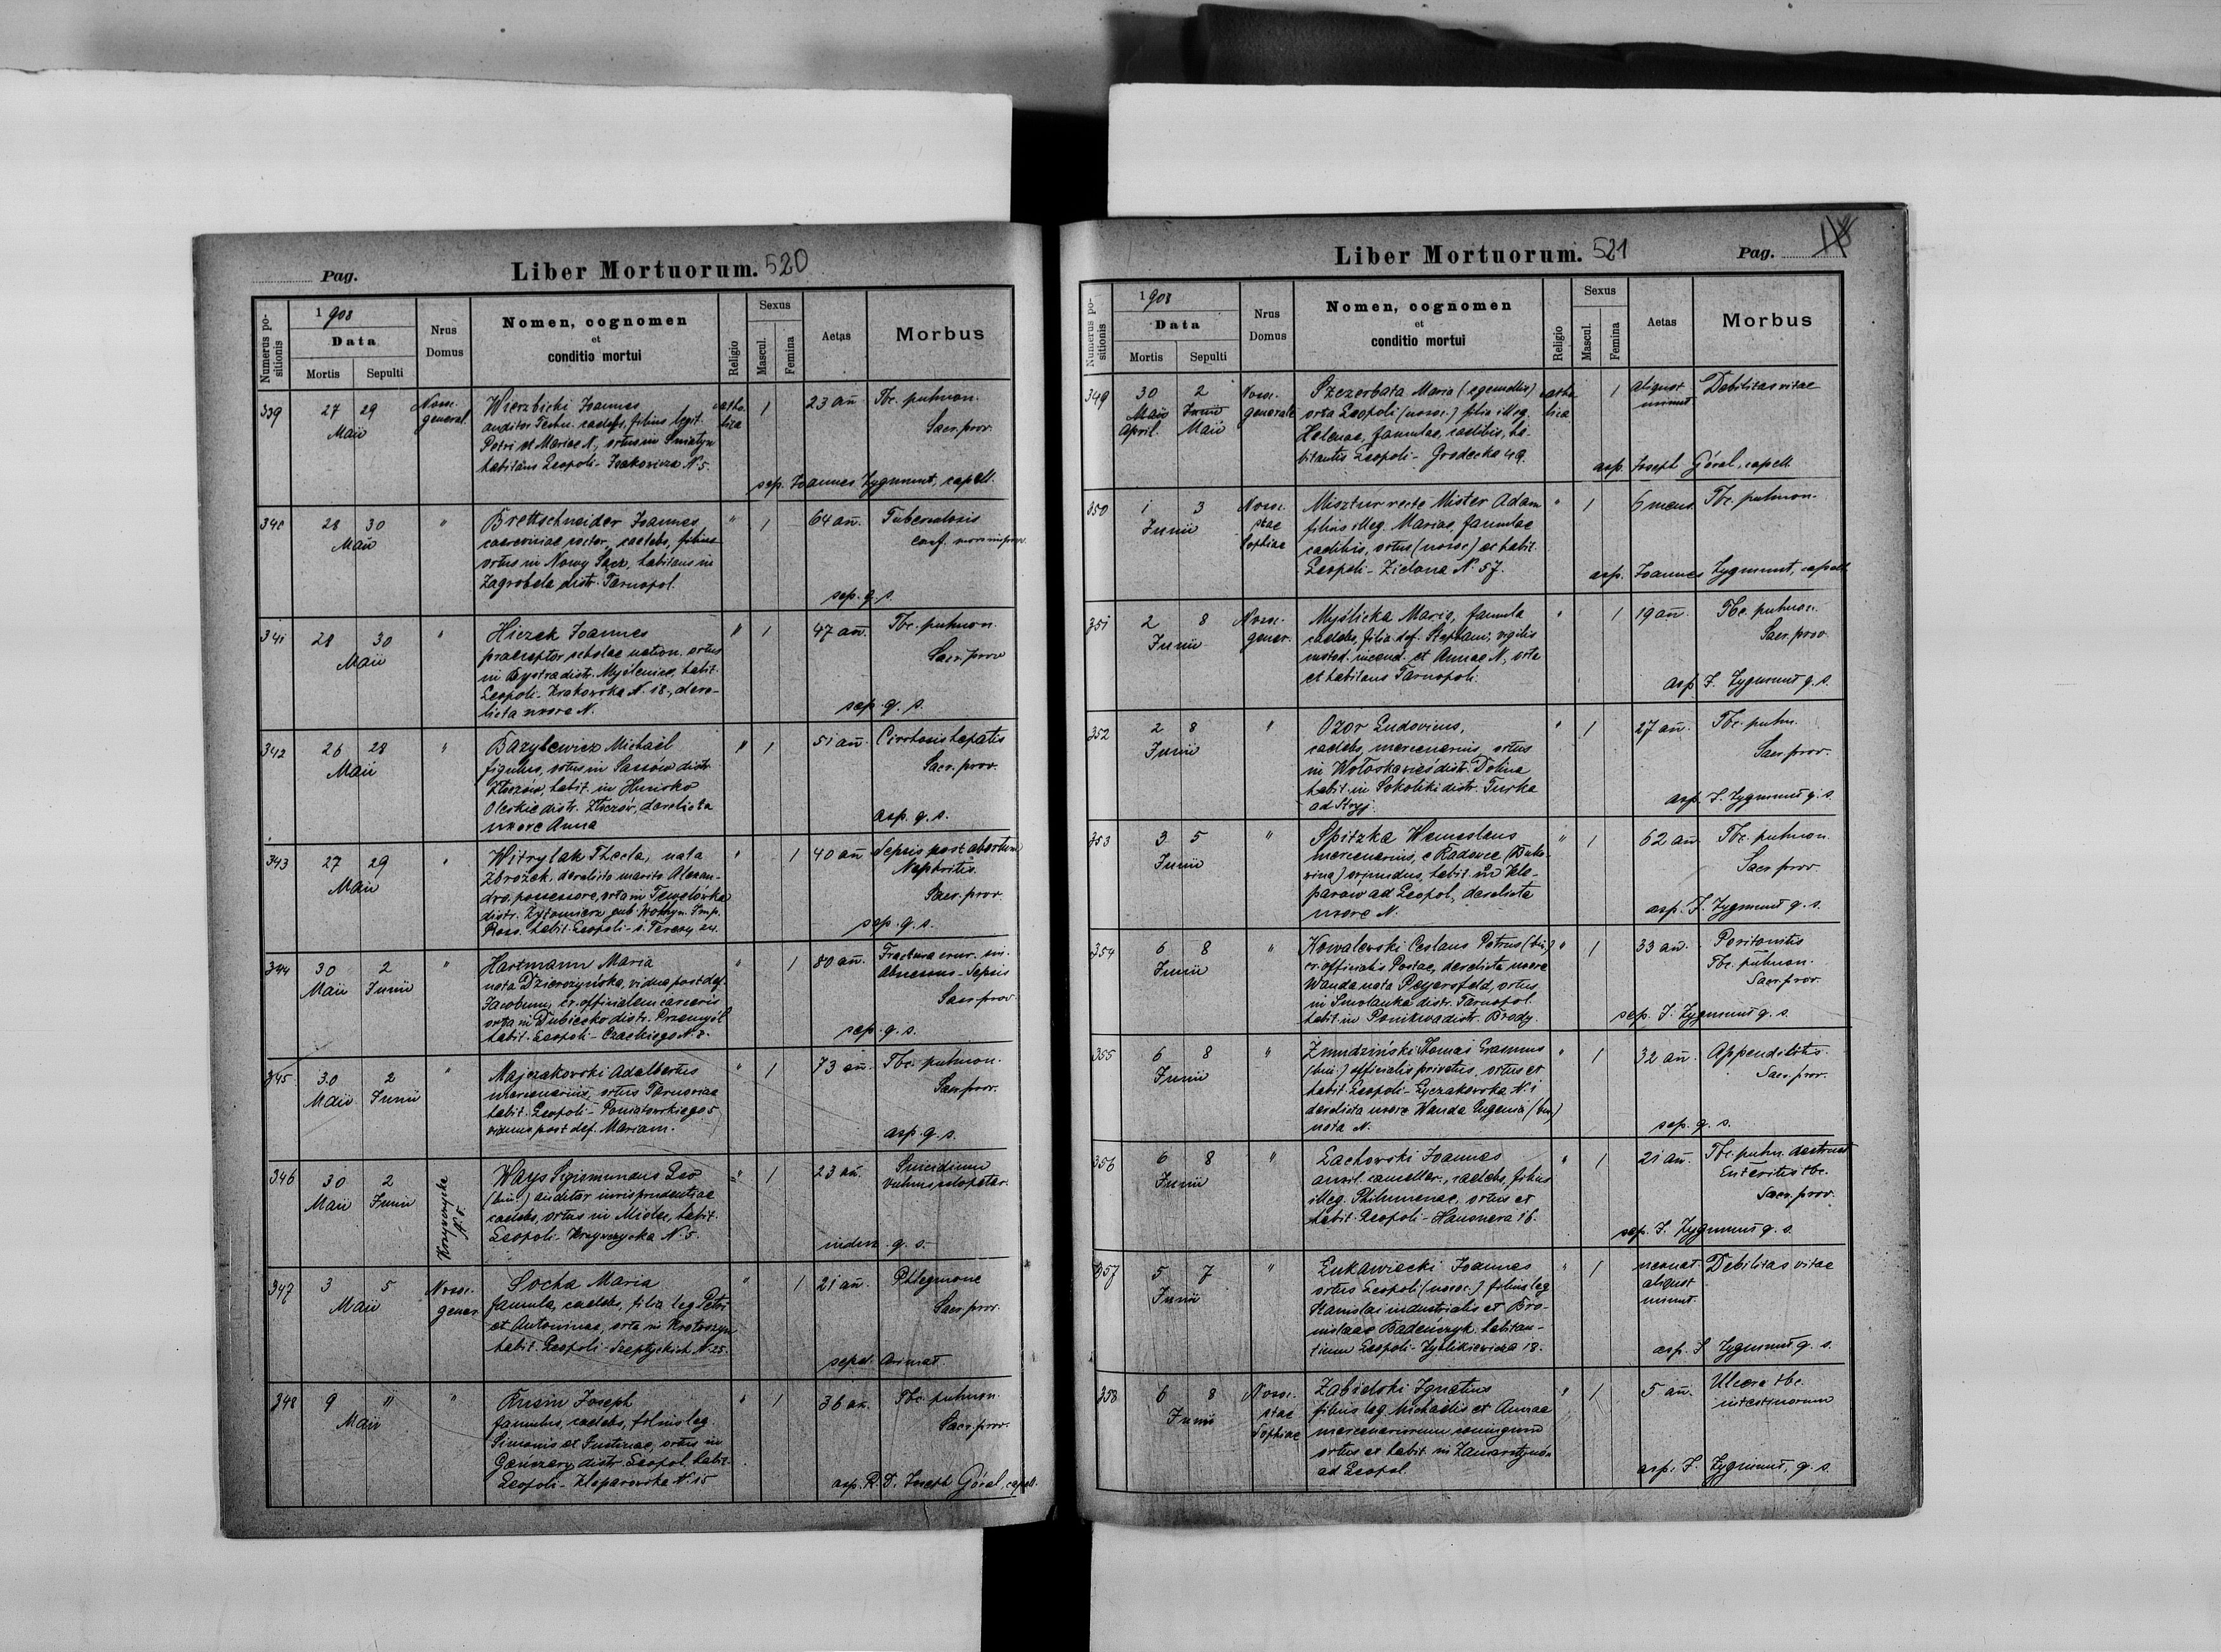 Pag.
Liber Mortuorum. 520
Numerus positionis
1908
Data
Mortis
Sepulti
Nrus Domus
Nomen, cognomen
et
conditio mortui
Religio
Sexus
Mascul.
Femina
Aetas
Morbus
339 27 29 Nosoc. Wierzbicki Joannes catho- 1 23 an̄ Tbc. pulmon.
Maii general. auditor Techn. caelebs, filius legit. lica Sacr. prov.
Petri et Mariae N., ortus in Śniatyn
habitans Leopoli - Issakowicza N. 5.
sep. Joannes Zygmunt, capell.
340 28 30 " Brettschneider Joannes " 1 64 an̄. Tuberculosis
Maii cerevisiae coctor, caelebs, filius
ortus in Nowy Sącz, habitans in
Zagrobela distr. Tarnopol
sep. q. s.
341 28 30 " Hiczek Joannes " 1 47 an̄. Tbc. pulmon.
Maii praeceptor scholae nation. ortus Sacr. prov
in Bystra distr. Myślenice, habit.
Leopoli - Krakowska N. 18., dere-
licta uxore N.
sep. q. s.
342 26 28 " Bazylewicz Michaël " 1 51 an̄. Cirrhosis hepatis
Maii figulus, ortus in Sassów distr. Sacr. prov.
Złoczów, habit. in Hucisko
Oleskie distr. Złoczów, derelicta
uxore Anna
asp. q. s.
343 27 29 " Witrylak Thecla, nata " 1 40 an̄ Sepsis post abortum
Maii Zbrożek, derelicto marito Alexan- Nephritis.
dro, possessore, orta in Tewelówka Sacr. prov.
distr. Żytomierz gub. Wołhyn. Imp.
Ross. habit. Leopoli - s. Teresy
sep. q. s.
344 30 2 " Hartmann Maria " 1 80 an̄. Fractura crur. sin.
Maii Junii nata Dzierożyńska, vidua post def. Abscessus - Sepsis
Jacobum, cr. officialem carceris Sacr. prov
orta in Dubiecko distr. Przemyśl
habit. Leopoli - Czackiego N. 8.
sep. q. s.
345. 30 2 " Majczakowski Adalbertus " 1 73 an̄. Tbc. pulmon.
Maii Junii mercenarius, ortus Tarnoviae Sacr. prov.
habit. Leopoli - Poniatowskiego 5
viduus post def. Mariam.
asp. q. s.
346 30 2 Krzywczycka N. 5. Ways Sigismundus Leo " 1 23 an̄. Suicidium
Maii Junii (bin.) auditor iurisprudentiae vulnus sclopetar.
caelebs, ortus in Mielec, habit.
Leopoli - Krzywczycka N. 5.
q. s.
347 3 5 Nosoc. Socha Maria " 1 21 an̄. Phlegmone
Maii gener. famula, caelebs, filia leg Petri Sacr. prov.
et Antoninae, orta in Krotoszyn
habit. Leopoli - Szeptyckich N. 25.
sepel. Animat.
348 9 " " Krusin Joseph " 1 36 an. Tbc. pulmon
Maii famulus, caelebs, filius leg. Sacr. prov.
Simonis et Justinae, ortus in
Gańczary distr. Leopol. habit.
Leopoli - Kleparowska N. 15
asp. R. D. Joseph Góral, capell.
Liber Mortuorum. 521
Pag. 18
Numerus positionis
1908
Data
Mortis
Sepulti
Nrus Domus
Nomen, cognomen
et
conditio mortui
Religio
Sexus
Mascul.
Femina
Aetas
Morbus
349 30 2 Nosoc. Szczerbata Maria (e gemellis) catho- 1 aliquot Debilitas vitae
Maii Junii generale orta Leopoli (nosoc.) filia illeg. lica minut
April. Maii Helenae, famulae, caelibis, ha-
bitantis Leopoli - Grodecka 49.
asp. Joseph Góral, capell.
350 1 3 Nosoc. Misztur recte Mister Adam " 1 6 mens. Tbc. pulmon.
Junii stae filius illeg. Mariae, famulae
Sophiae caelibis, ortus (nosoc.) et habit.
Leopoli - Zielona N. 57.
asp. Joannes Zygmunt, capell.
351 2 8 Nosoc. Myślicka Maria, famula " 1 19 an̄. Tbc. pulmon.
Junii gener. caelebs, filia def. Stephani, vigilis Sacr. prov.
custod. incend. et Annae N., orta
et habitans Tarnopoli.
asp J. Zygmunt q. s.
352 2 8 " Ozor Ludovicus, " 1 27 an̄. Tbc. pulm.
Junii caelebs, mercenarius, ortus Sacr. prov.
in Wołoska wieś distr. Dolina
habit. in Sokoliki distr. Turka
ad Stryj.
asp. J. Zygmunt q. s.
353 3 5 " Spitzka Wenceslaus " 1 62 an Tbc. pulmon.
Junii mercenarius, e Radovce (Buko- Sacr. prov
vina) oriundus, habit. in Kle-
parów ad Leopol., derelicta
uxore N.
asp. J. Zygmunt q. s.
354 6 8 " Kowalewski Ceslaus Petrus (bin.) " 1 33 an̄. Peritonitis
Junii cr. officialis Postae, derelicta uxore Tbc. pulmon.
Wanda nata Peyersfeld, ortus Sacr. prov.
in Smolanka distr. Tarnopol
habit. in Ponikwa distr. Brody.
sep. J. Zygmunt q. s.
355 6 8 " Zmudziński Thomas Erasmus " 1 32 an̄. Appendicitis.
Junii (bin.) officialis privatus, ortus et Sacr. prov.
habit. Leopoli - Łyczakowska N. 1
derelicta uxore Wanda Eugenia (bin.)
nata N.
sep. q. s.
356 6 8 " Lachowski Joannes " 1 21 an̄. Tbc. pulm. destruct
Junii auxil. cancellar., caelebs, filius Enteritis tbc.
illeg. Philumenae, ortus et Sacr. prov.
habit. Leopoli - Hausnera 16.
sep. J. Zygmunt q. s.
357 5 7 " Łukawiecki Joannes " 1 neonat Debilitas vitae
Junii ortus Leopoli (nosoc.) filius leg aliquot
Stanislai industrialis et Bro- minut.
nislaae Badeńczyk habitan-
tium Leopoli - Zyblikiewicza 18.
asp. J Zygmunt q. s.
358 6 8 Nosoc. Zabielski Ignatius " 1 5 an̄. Ulcera tbc.
Junii stae filius leg. Michaelis et Annae intestinorum
Sophiae mercenariorum coniugum
ortus et habit. in Zamarstynów
ad Leopol.
asp. J. Zygmunt, q. s.